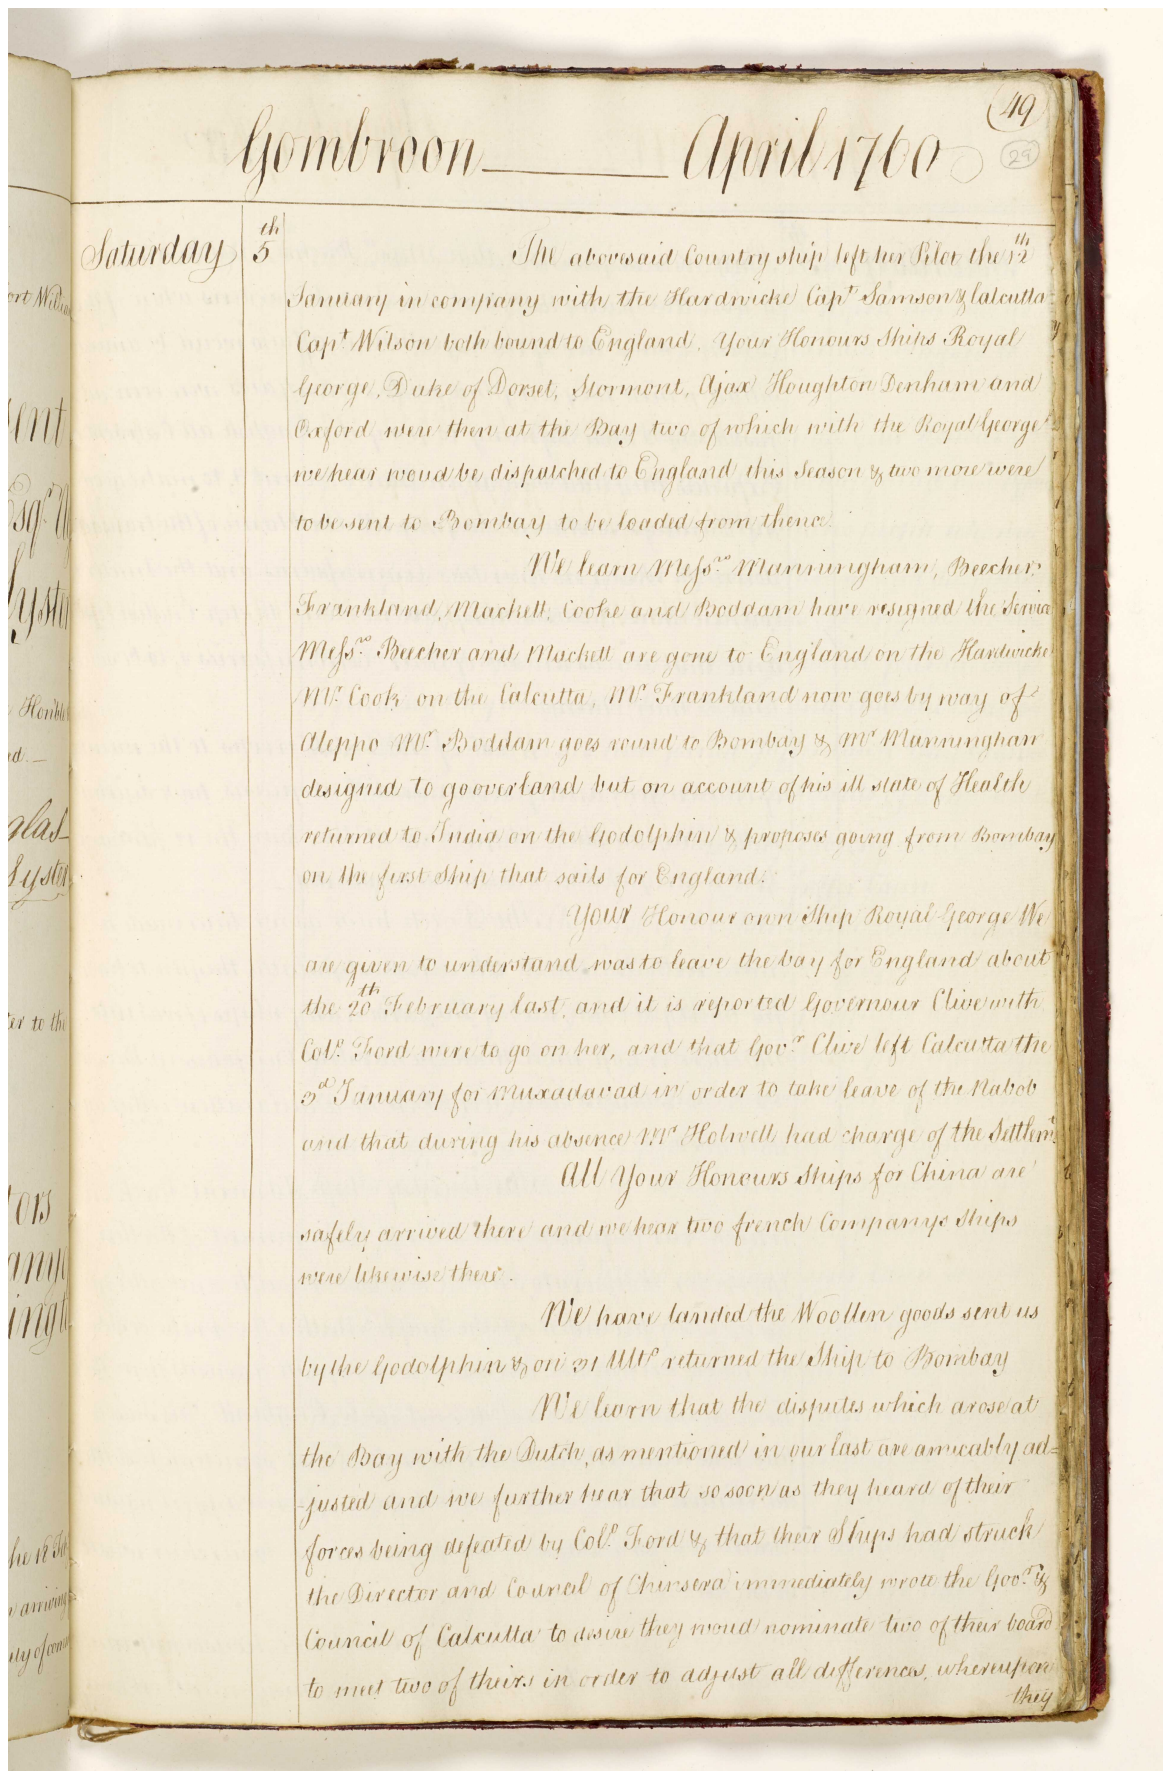 49
29
Gombroon April 1760
Saturday 5th The abovesaid Country ship left her Pilot the 12th
January in company with the Hardwicke Capt. Samson & Calcutta
Capt. Wilson both bound to England. Your Honours Ships Royal
George, Duke of Dorset, Stormont, Ajax Houghton Denham and
Oxford were then at the Bay two of which with the Royal George
we hear woud be dispatched to England this Season & two more were
to be sent to Bombay to be loaded from thence.
We learn Messrs. Manningham, Beecher,
Frankland, Mackett, Cooke and Boddam have resigned the Service
Messrs. Beecher and Mackett are gone to England on the Hardwicke
Mr. Cook on the Calcutta, Mr. Frankland now goes by way of
Aleppo Mr. Boddam goes round to Bombay & Mr Manningham
designed to go overland but on account of his ill state of Health
returned to India on the Godolphin & proposes going from Bombay
on the first Ship that sails for England.
Your Honour own Ship Royal George We
are given to understand was to leave the bay for England about
the 20th February last, and it is reported Governour Clive with
Colo. Ford were to go on her, and that Govr. Clive left Calcutta the
3d January for Muxadavad in order to take leave of the Nabob
and that during his absence Mr Holwell had charge of the Settlemt.
All Your Honours Ships for China are
safely arrived there and we hear two french Companys Ships
were likewise there.
We have landed the Woollen goods sent us
by the Godolphin & on 31 Ulto returned the Ship to Bombay
We learn that the disputes which arose at
the Bay with the Dutch, as mentioned in our last are amicably ad=
-justed and we further hear that so soon as they heard of their
forces being defeated by Colo. Ford & that their Ships had struck
the Director and Council of Chinsera immediately wrote the Govr. &
Council of Calcutta to desire they woud nominate two of their board
to meet two of theirs in order to adjust all differences, whereupon
they